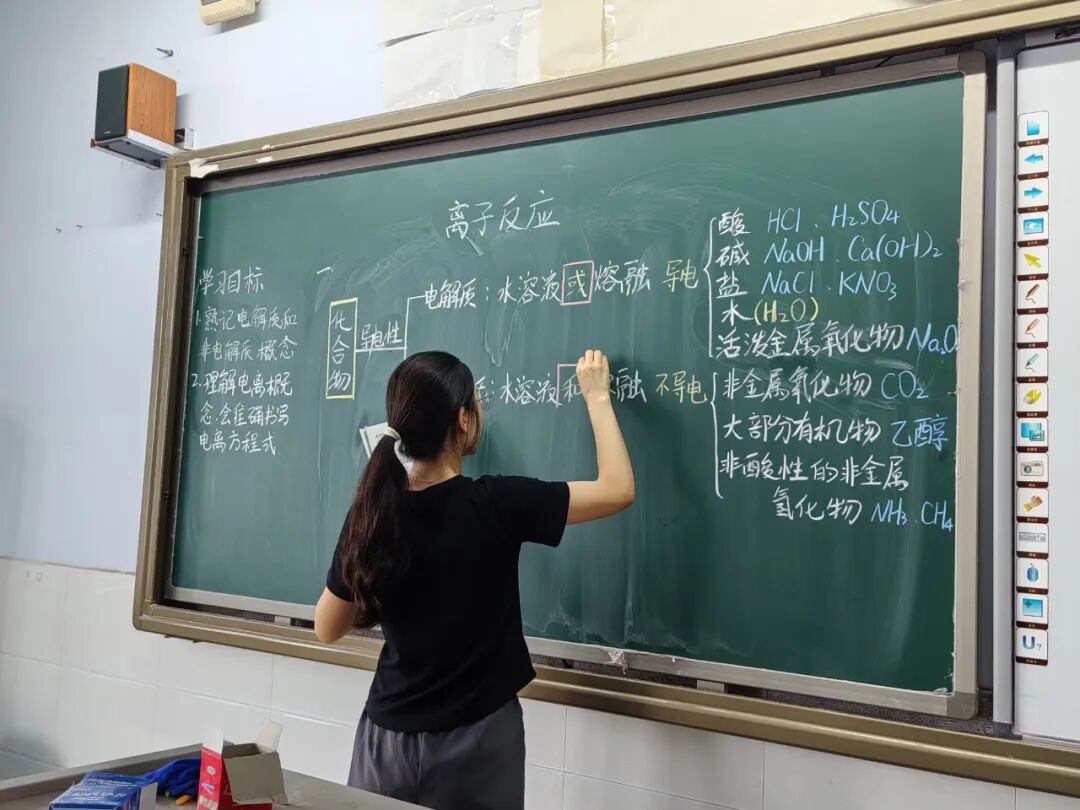 离子反应
学习目标
1.熟记电解质和
非电解质概念
2.理解电离概
念.会准确书写
电离方程式.
一、
化合物
导电性
电解质：水溶液或熔融 导电
酸 HCl . H₂SO₄
碱 NaOH . Ca(OH)₂
盐 NaCl . KNO₃
水(H₂O)
活泼金属氧化物 Na₂O
：水溶液和 融 不导电
非金属氧化物 CO₂
大部分有机物 乙醇
非酸性的非金属
氢化物 NH₃.CH₄